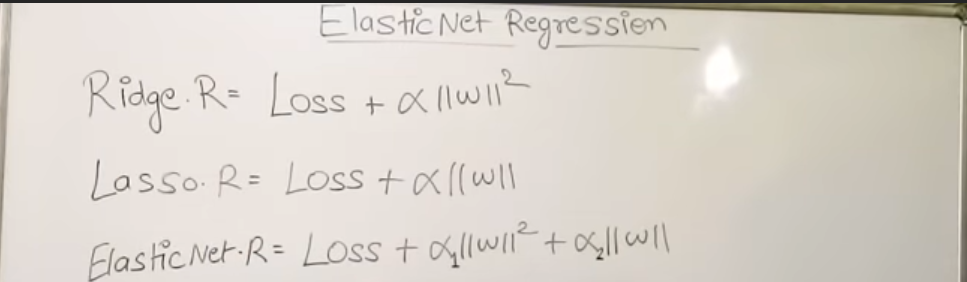 ElasticNet Regression
Ridge.R= Loss + α||w||²
Lasso.R= Loss + α||w||
ElasticNet.R= Loss + α₁||w||² + α₂||w||